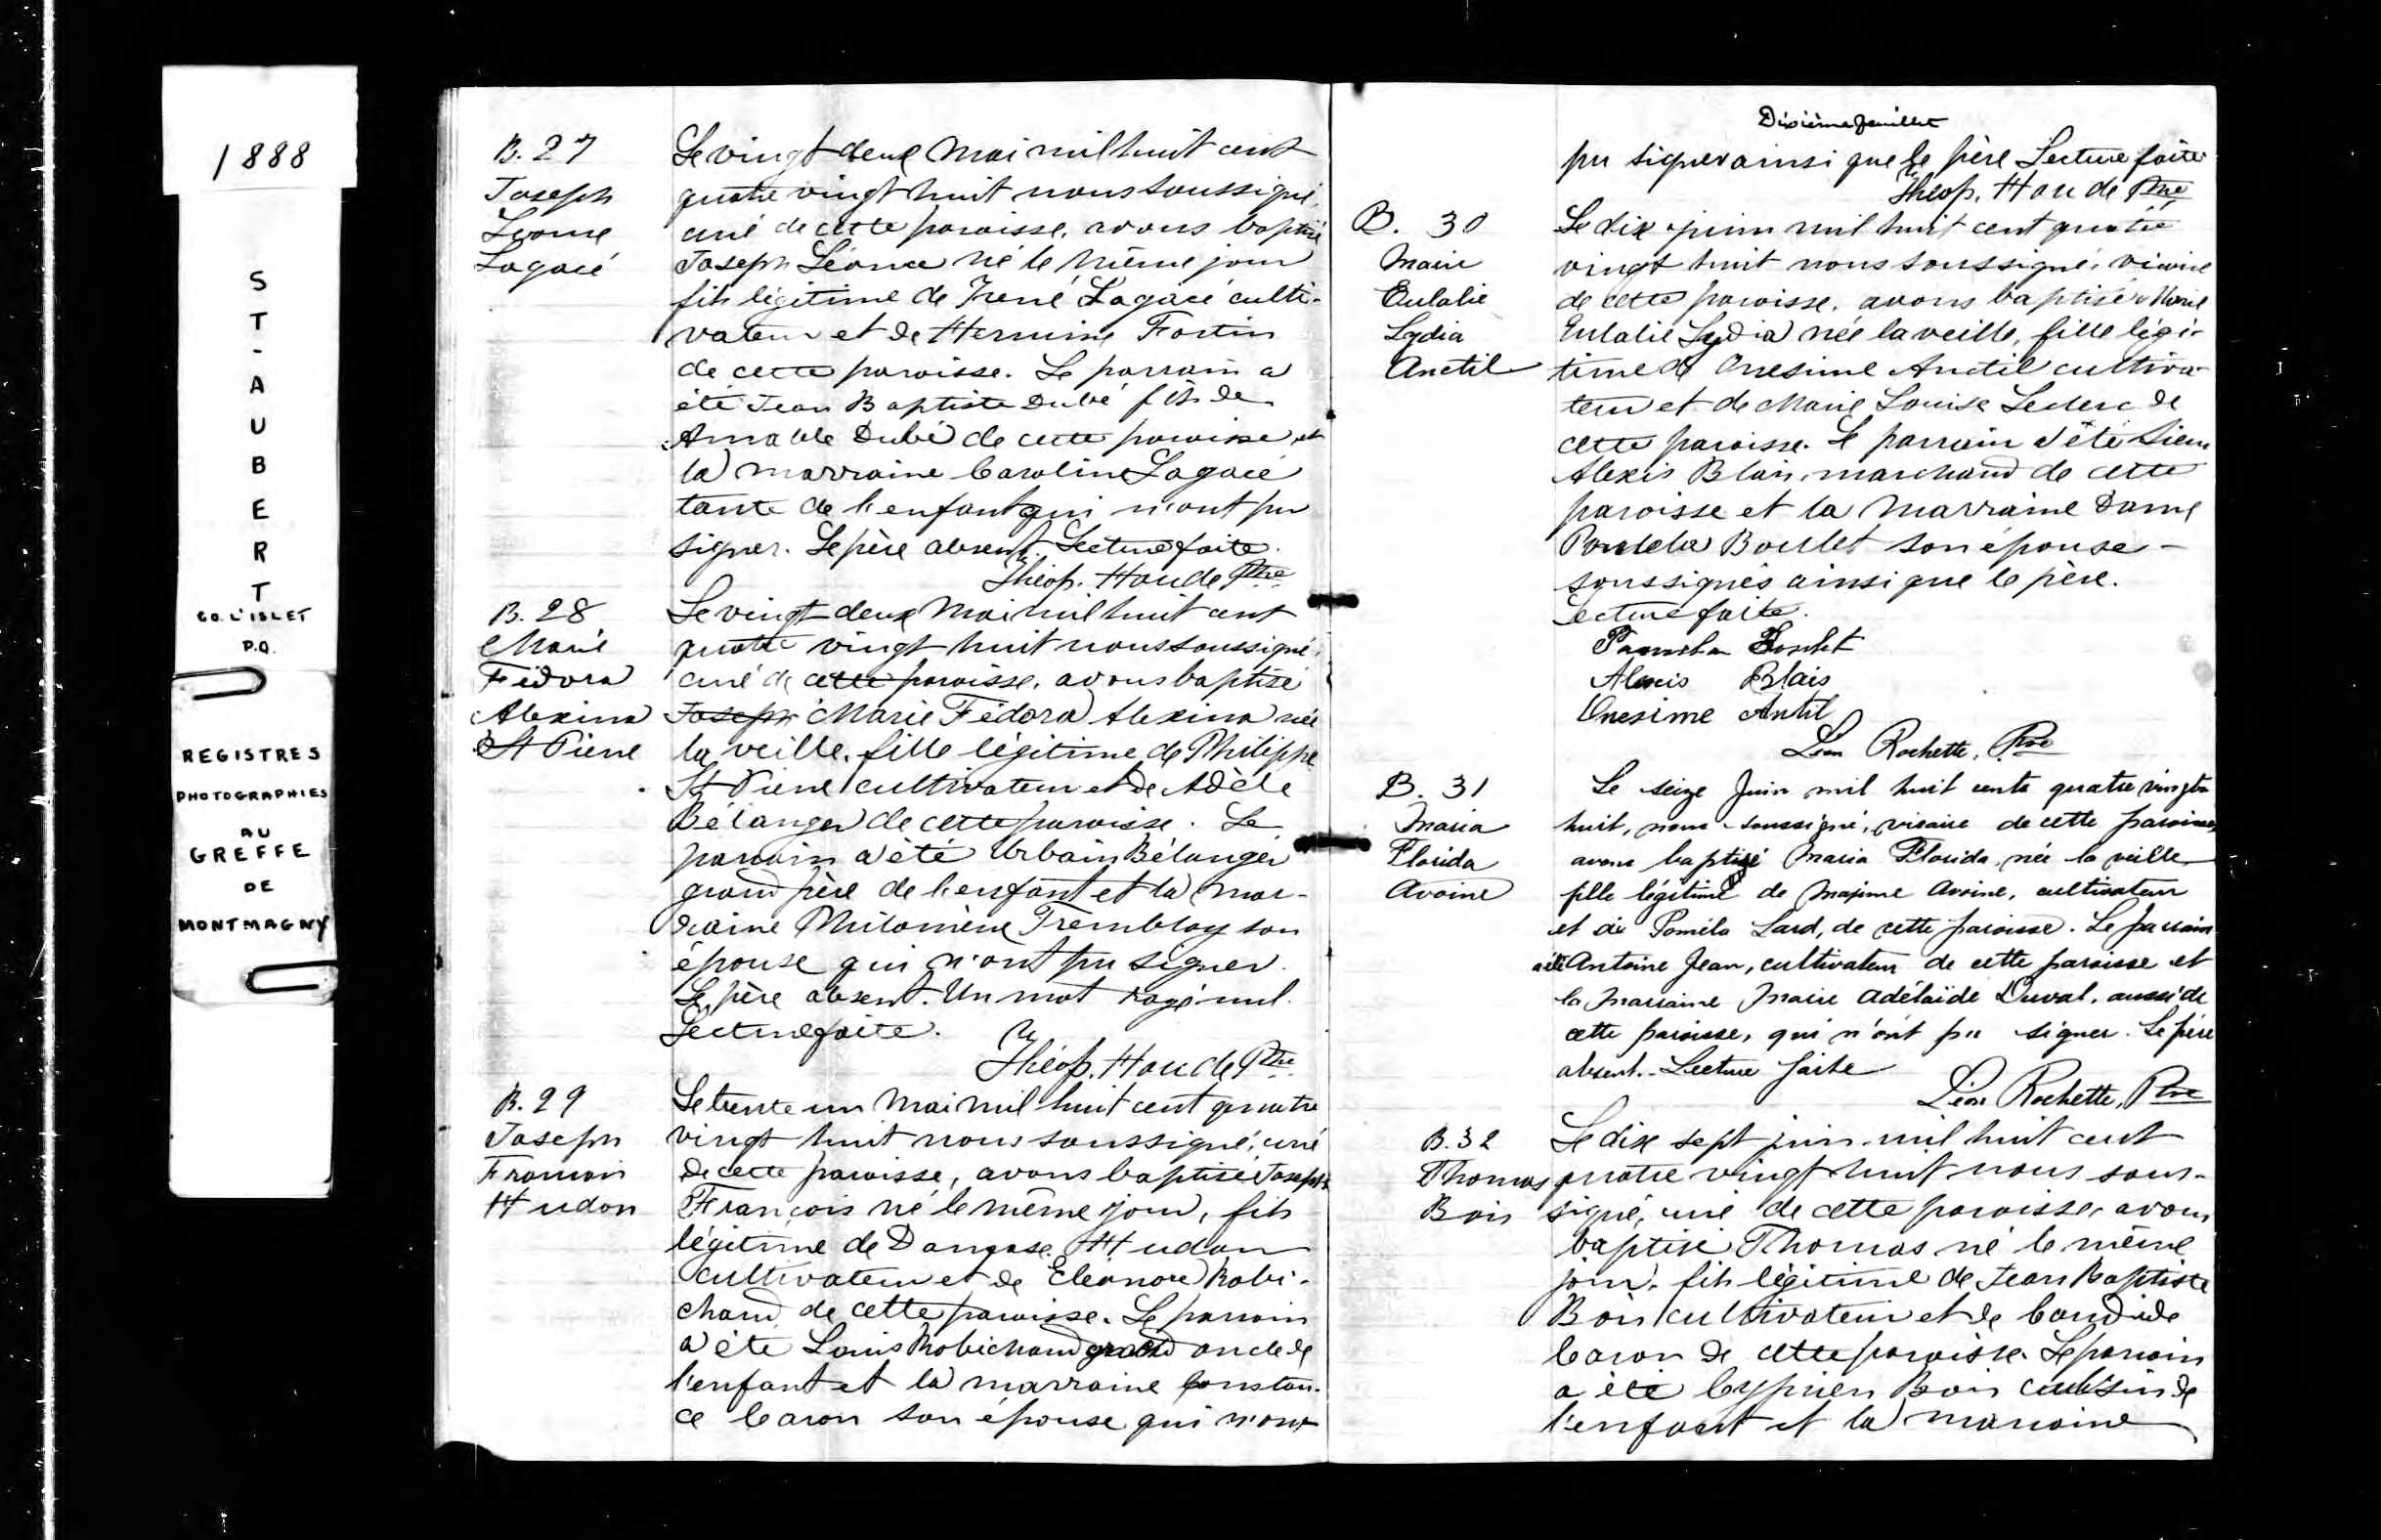 1888
ST-AUBERT
CO. L'ISLET
P.Q.
REGISTRES
PHOTOGRAPHIES
AU
GREFFE
DE
MONTMAGNY
B. 27
Joseph
Léonce
Lagacé
Le vingt deux Mai mil huit cent
quatre vingt huit nous soussigné,
curé de cette paroisse, avons baptisé
Joseph Léonce né le même jour
fils légitime de Irené Lagacé culti-
vateur et de Hermine Fortin
de cette paroisse. Le parrain a
été Jean Baptiste Dubé fils de
Amable Dubé de cette paroisse et
la marraine Caroline Lagacé
tante de l'enfant qui n'ont pu
signer. Le père absent. Lecture faite.
Théop. Houde Ptre
B. 28
Marie
Fédora
Alexina
St Pierre
Le vingt deux Mai mil huit cent
quatre vingt huit nous soussigné,
curé de cette paroisse, avons baptisé
Joseph Marie Fédora Alexina née
la veille, fille légitime de Philippe
St Pierre cultivateur et de Adèle
Bélanger de cette paroisse. Le
parrain a été Urbain Bélanger
grand père de l'enfant et la mar-
raine Philomène Tremblay son
épouse qui n'ont pu signer.
Le père absent. Un mot rayé nul.
Lecture faite.
Théop. Houde Ptre
B. 29
Joseph
Francois
Hudon
Le trente un Mai mil huit cent quatre
vingt huit nous soussigné, curé
de cette paroisse, avons baptisé Joseph
François né le même jour, fils
légitime de Damase Hudon
cultivateur et de Eléonore Robi-
chaud de cette paroisse. Le parrain
a été Louis Robichaud grand oncle de
l'enfant et la marraine Constan-
ce Caron son épouse qui n'ont
Dixième feuillet
pu signer ainsi que le père Lecture faite
Théop. Houde Ptre
B. 30
Marie
Eulalie
Lydia
Anctil
Le dix juin mil huit cent quatre
vingt huit nous soussigné, vicaire
de cette paroisse, avons baptisé Marie
Eulalie Lydia née la veille, fille légi-
time de Onesime Anctil cultiva-
teur et de Marie Louise Leclerc de
cette paroisse. Le parrain a été Sieur
Alexis Blais, marchand de cette
paroisse et la Marraine Dame
Boulet son épouse -
soussignés ainsi que le père.
Lecture faite.
Pamela Boulet
Alexis Blais
Onesime Antil
Léon Rochette, Ptre
B. 31
Maria
Florida
Avoine
Le seize Juin mil huit cents quatre vingts
huit, nous soussigné, vicaire de cette paroisse,
avons baptisé Maria Florida, née la veille
fille légitime de Maxime Avoine, cultivateur
et de Paméla Lard, de cette paroisse. Le parrain
a été Antoine Jean, cultivateur de cette paroisse et
la Marraine Marie Adélaïde Duval, aussi de
cette paroisse, qui n'ont pu signer. Le père
absent. - Lecture faite
Léon Rochette, Ptre
B. 32
Thomas
Bois
Le dix sept juin mil huit cent
quatre vingt huit nous sous-
signé, curé de cette paroisse avons
baptisé Thomas né le même
jour, fils légitime de Jean Baptiste
Bois cultivateur et de Candide
Caron de cette paroisse. Le parrain
a été Cyprien Bois cousin de
l'enfant et la marraine